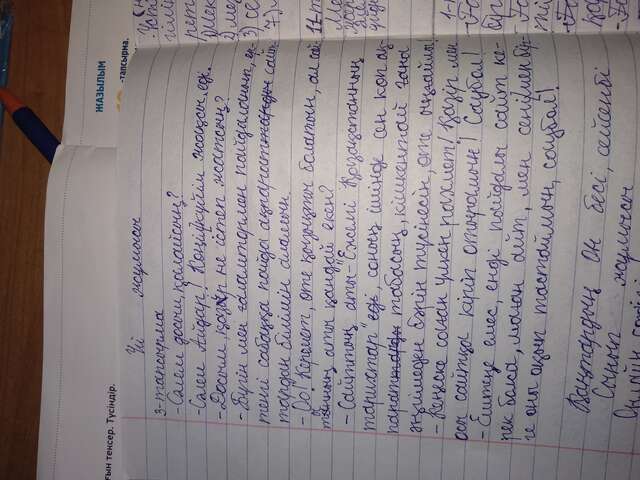 ғын тексер. Түсіндір.
ЖАЗЫЛЫМ
-тапсырма.
Үй жұмысы
3-тапсырма
-Сәлем досым, қалайсың?
-Сәлем Айдар! Көңіл күйім жақсы еді.
-Досым, қазір не істеп жатсың?
-Бүгін мен ғаламтормен пайдаланып, ер-
тенгі сабаққа пайда ақпараттарды сайт-
тардан білімін аламын.
-Оо! Керемет, өте қызықты болатын, ал сай-
тының аты қандай екен?
-Сайттың аты-"Ежелгі Қазақстанның
тарихтар" еді, соның ішінде сен көп ақ-
параттарды табасың, кішкентай ғана
әңгімеден бәрін түсінесің, өте ыңғайлы!
-Кеңеске саған үлкен рахмет! Қазір мен
осы сайтқа кіріп отырамын! Саубол!
-Ештеңе емес, енді пайдалы сайт ке-
рек болса, маған айт, мен сенімен бір-
ге оны оқып тастаймын, саубол!
Қаңтардың он бесі, сейсенбі
Сынып жұмысы
Онлайн